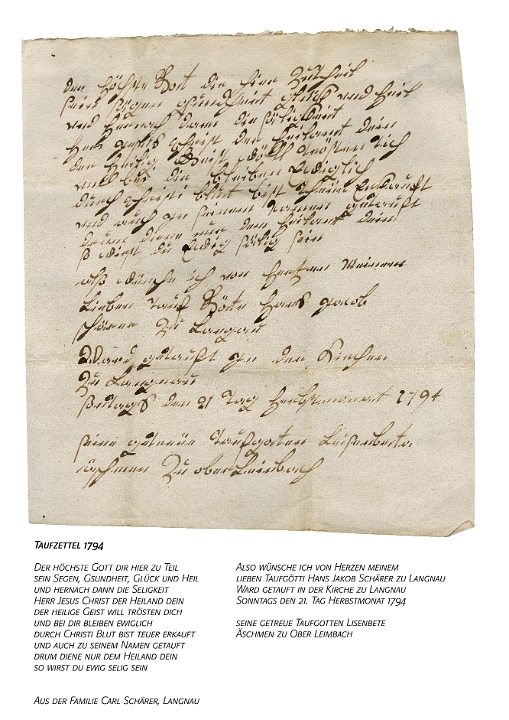 der Höchste Gott dir hier Zutheil
sein Sägen gsundheit glükk und heil
und hernach dann die säligkeit
Herr Christ der heilant dein
der heilig Geist wöll trösten dich
und bei dir bleiben Ewiglich
durch Christi blut bist Erkauft
und auch seinem namen getauft
diene nur dem heilant dein
so wirst du Ewig sälig sein
also wünsche ich von hertzen Meinem
Lieben Tauf Götti Hans Jacob
schärer Zu Langnau
Ward getauft in der Kirchen
Zu Langnau
den 21 Tag herbstmonat 1794
seine getreüe Taufgoten
äschmen Zu ober Leimbach
Taufzettel 1794
Der höchste Gott dir hier zu Teil
sein Segen, Gsundheit, Glück und Heil
und hernach dann die Seligkeit
Herr Jesus Christ der Heiland dein
der heilige Geist will trösten dich
und bei dir bleiben ewiglich
durch Christi Blut bist teuer erkauft
und auch zu seinem Namen getauft
drum diene nur dem Heiland dein
so wirst du ewig selig sein
Also wünsche ich von Herzen meinem
lieben Taufgötti Hans Jakob Schärer zu Langnau
Ward getauft in der Kirche zu Langnau
Sonntags den 21. Tag Herbstmonat 1794
seine getreue Taufgotten Lisenbete
Äschmen zu Ober Leimbach
Aus der Familie Carl Schärer, Langnau